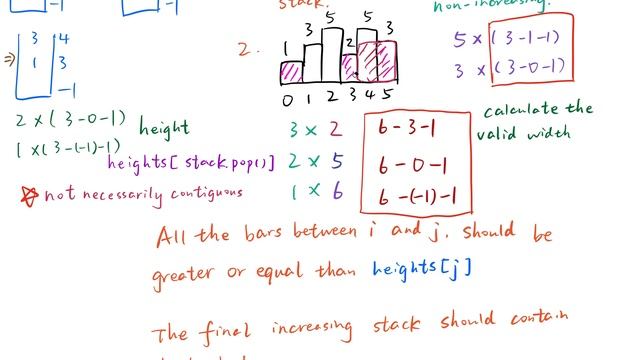 -1
-1
stack.
non-increasing.
3 4
⇒ 1 3
-1
2.
1 3 5 2 5 3
0 1 2 3 4 5
5 × (3-1-1)
3 × (3-0-1)
2 × (3-0-1)
height
1 × (3-(-1)-1)
heights[stack.pop()]
not necessarily contiguous
3 × 2 6-3-1
2 × 5 6-0-1
1 × 6 6-(-1)-1
calculate the
valid width
All the bars between i and j, should be
greater or equal than heights[j]
The final increasing stack should contain